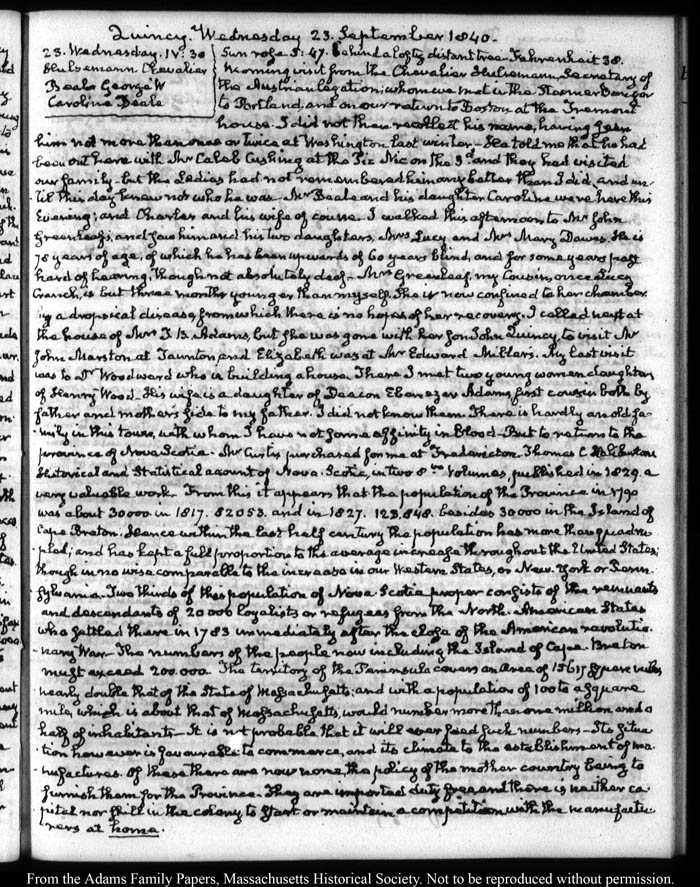 Quincy. Wednesday 23. September 1840.
23. Wednesday. IV: 30
Hulsemann Chevalier
Beale George W
Caroline Beale
Sun rose 5: 47. behind a lofty distant tree. Fahrenheit 38.
Morning visit from the Chevalier Hulsemann, Secretary of
the Austrian legation; whom we met in the Steamer Bangor
to Portland, and on our return to Boston, at the Tremont
house. I did not then recollect his name, having seen
him not more than once or twice at Washington last winter—He told me that he had
been out here with Mr Caleb Cushing at the Pic Nic on the 3d and they had visited
our family—but the Ladies had not remembered him any better than I did, and un-
til this day knew not who he was. Mr Beale and his daughter Caroline were here this
Evening; and Charles and his wife of course. I walked this afternoon to Mr John
Greenleaf's, and saw him and his two daughters, Mrs Lucy and Mrs Mary Dawes. He is
78 years of age, of which he has been upwards of 60 years blind, and for some years past
hard of hearing, though not absolutely deaf—Mrs Greenleaf, my Cousin, once Lucy
Cranch, is but three months younger than myself. She is now confined to her chamber
by a dropsical disease, from which there is no hopes of her recovery. I called next at
the house of Mrs T. B. Adams, but she was gone with her son John Quincy, to visit Mr
John Marston at Taunton, and Elizabeth was at Mr Edward Miller's. My last visit
was to Dr Woodward who is building a house. There I met two young women daughters
of Henry Wood—His wife is a daughter of Deacon Ebenezer Adams, first cousin both by
father and mother's side to my father. I did not know them. There is hardly an old fa-
mily in this town, with whom I have not some affinity in blood—But to return to the
province of Nova Scotia—Mr Curtis purchased for me at Fredericton. Thomas C. Haliburton
Historical and Statistical account of Nova-Scotia, in two 8vo Volumes, published in 1829. a
very valuable work. From this it appears that the population of the Province in 1790
was about 30000. in 1817. 82053. and in 1827. 123.848. besides 30000 in the Island of
Cape Breton. Hence within the last half century the population has more than quadru-
pled; and has kept a full proportion to the average increase throughout the United States;
though in no wise comparable to the increase in our Western States, or New York or Penn-
sylvania. Two thirds of this population of Nova Scotia proper consists of the remnants
and descendants of 20000 loyalists or refugees from the North-American States
who settled there in 1783 immediately after the close of the American revolutio-
nary War—The numbers of the people now including the Island of Cape-Breton
must exceed 200.000. The territory of the Peninsula covers an area of 15617 square miles
nearly double that of the State of Massachusetts; and with a population of 100 to a square
mile, which is about that of Massachusetts, would number more than one million and a
half of inhabitants—It is not probable that it will ever feed such numbers—Its situa-
tion however is favourable to commerce, and its climate to the establishment of ma-
nufactures. Of these there are now none, the policy of the mother country being to
furnish them for the Province. They are imported duty free, and there is neither ca-
pital nor skill in the colony to start or maintain a competition with the manufactu-
rers at home.
From the Adams Family Papers, Massachusetts Historical Society. Not to be reproduced without permission.